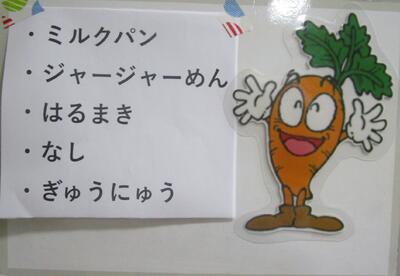 ・ミルクパン
・ジャージャーめん
・はるまき
・なし
・ぎゅうにゅう